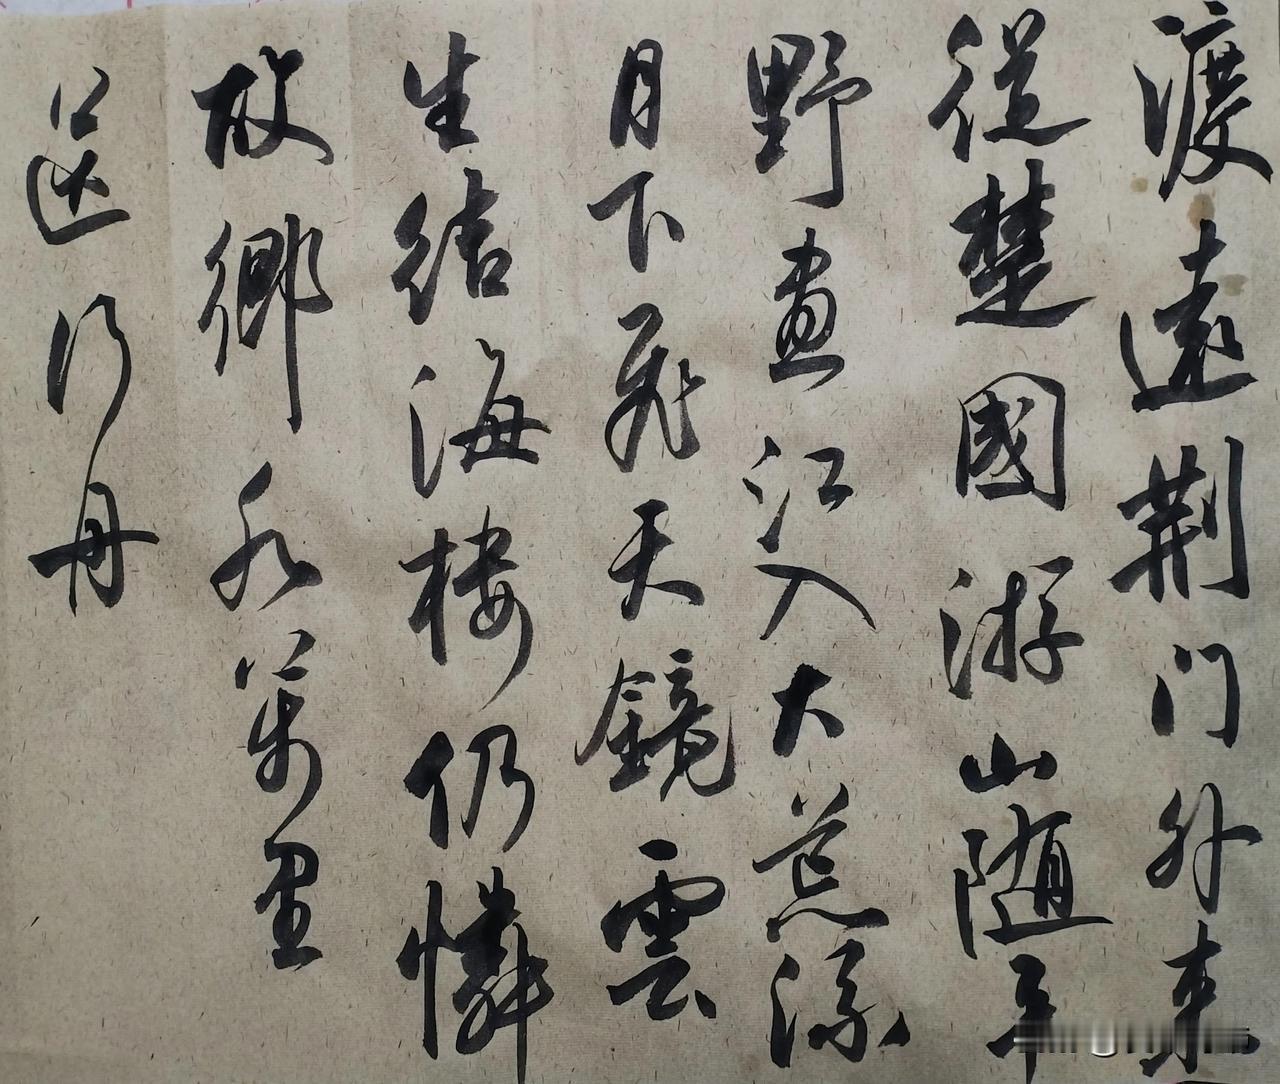 渡遠荆门外来
從楚國游山随平
野盡江入大荒流
月下飛天鏡雲
生結海楼仍憐
故鄉水萬里
送行舟